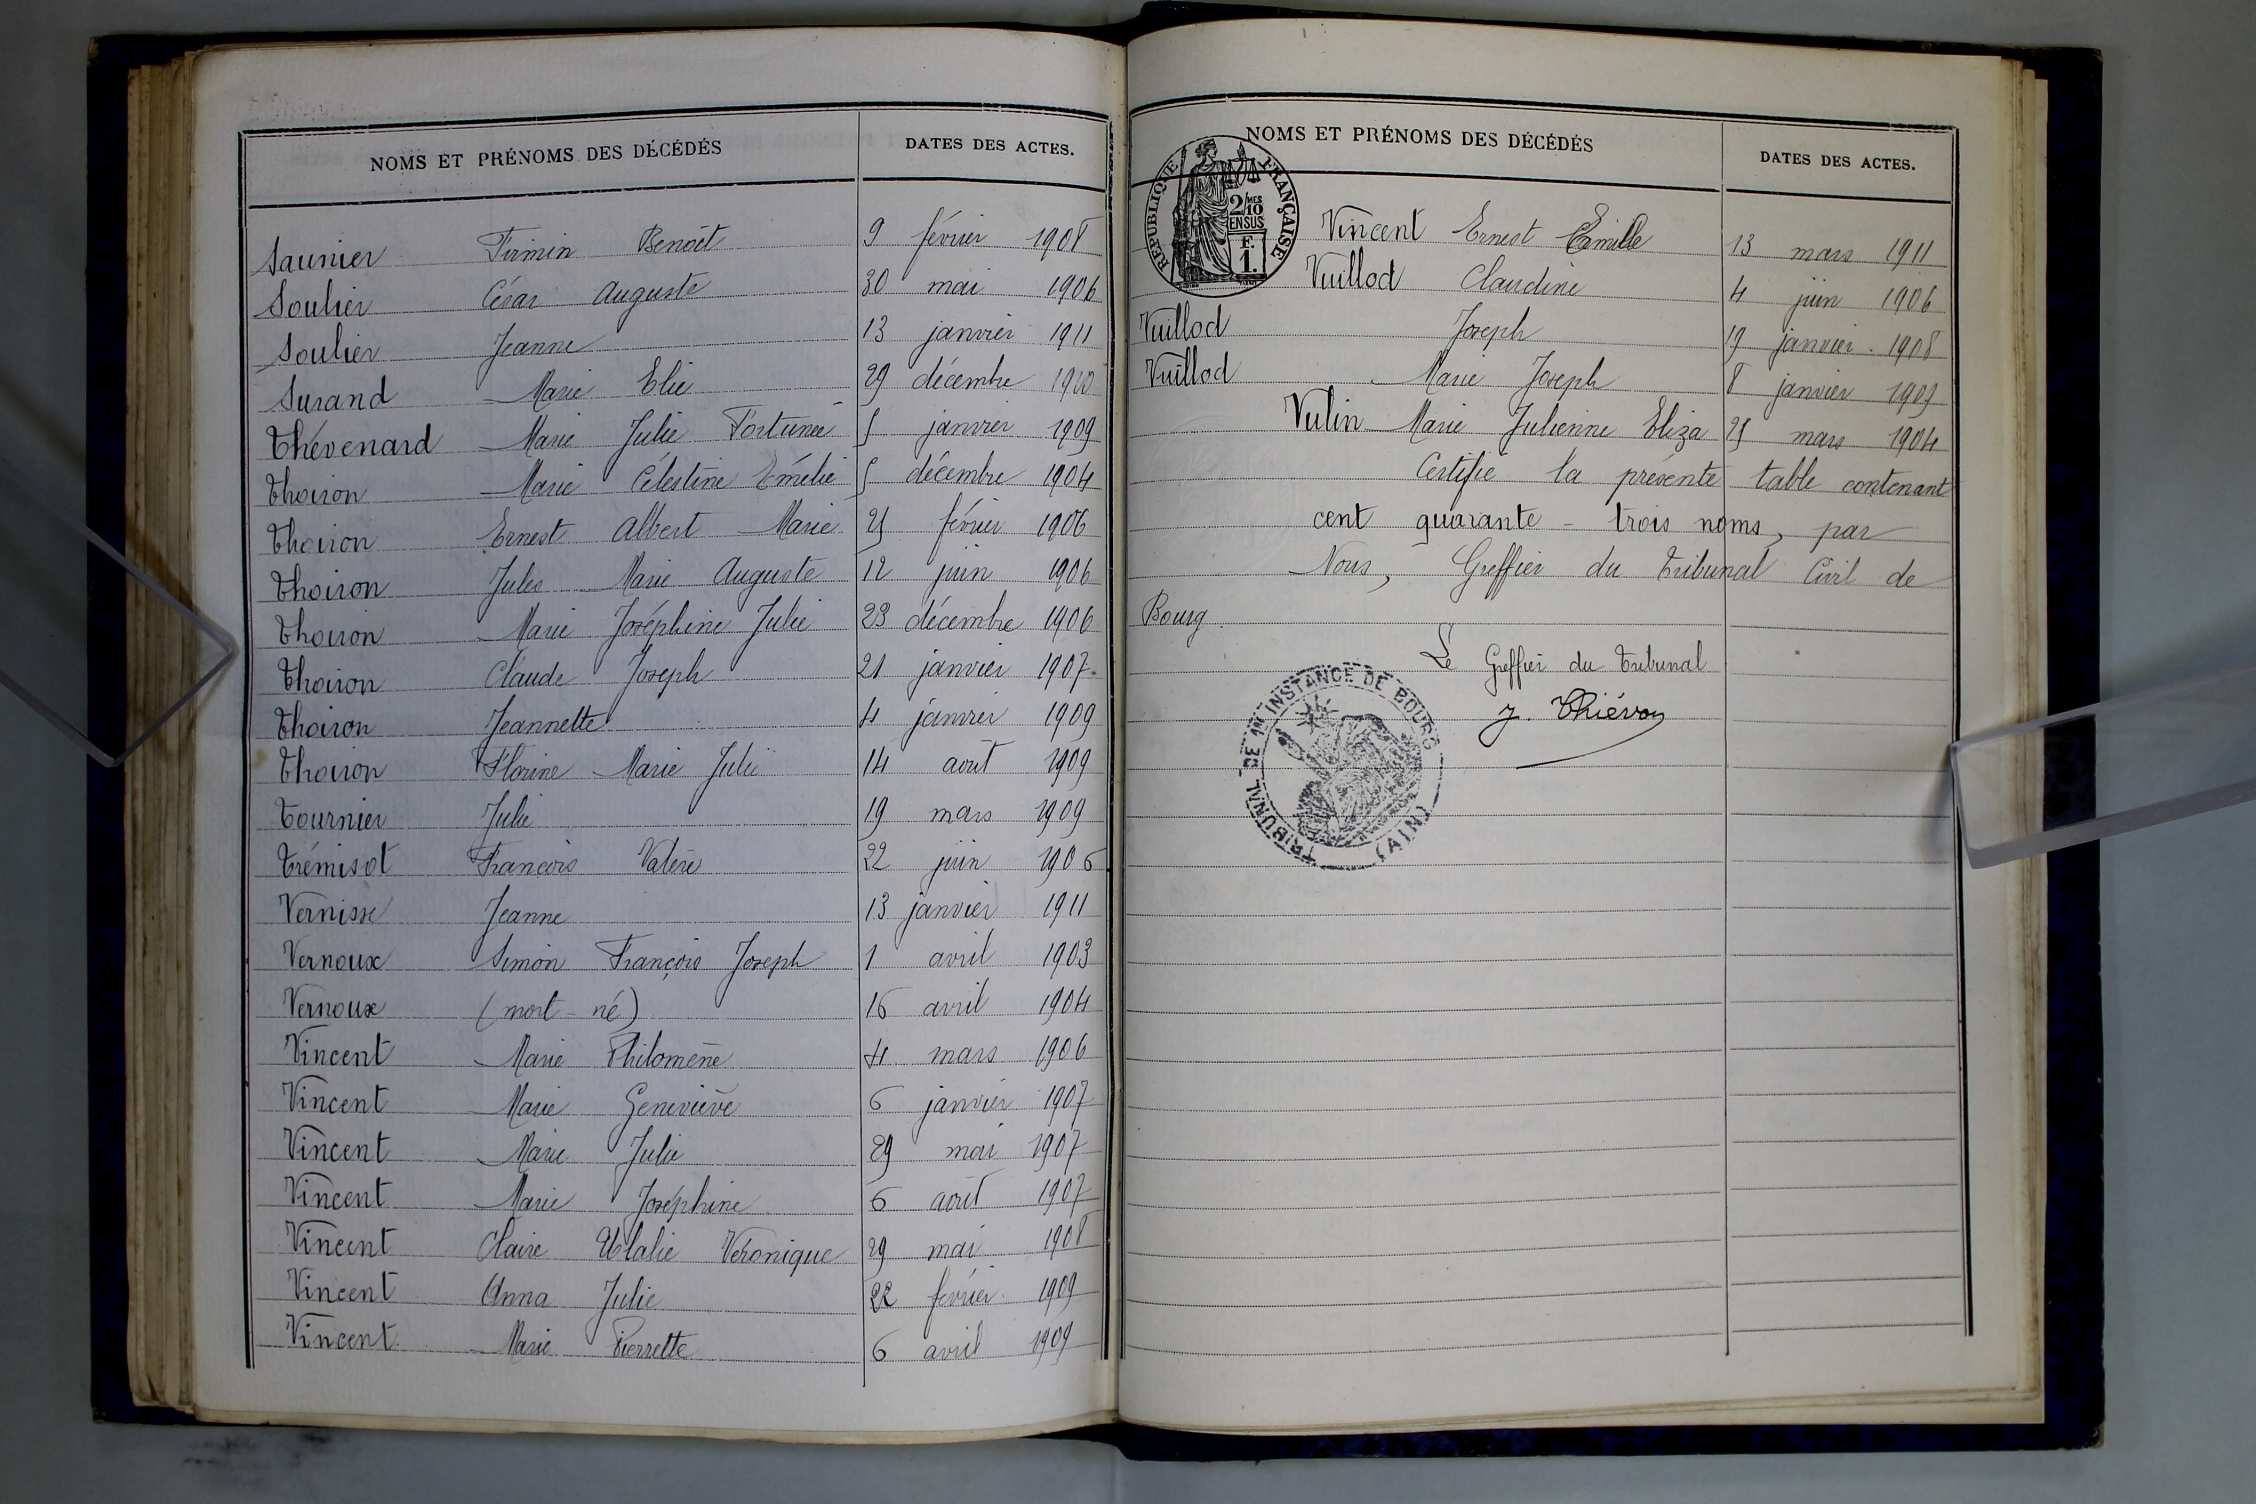 NOMS ET PRÉNOMS DES DÉCÉDÉS DATES DES ACTES.
Saunier Firmin Benoît 9 février 1908
Soulier César Auguste 30 mai 1906
Soulier Jeanne 13 janvier 1911
Surand Marie Elie 29 décembre 1910
Thévenard Marie Julie Fortunée 5 janvier 1909
Thoiron Marie Célestine Emélie 5 décembre 1904
Thoiron Ernest Albert Marie 25 février 1906
Thoiron Jules Marie Auguste 12 juin 1906
Thoiron Marie Joséphine Julie 23 décembre 1906
Thoiron Claude Joseph 21 janvier 1907
Thoiron Jeannette 4 janvier 1909
Thoiron Florine Marie Julie 14 août 1909
Tournier Julie 19 mars 1909
Trémisot Francois Valère 22 juin 1906
Vernisse Jeanne 13 janvier 1911
Vernoux Simon François Joseph 1 avril 1903
Vernoux (mort-né) 16 avril 1904
Vincent Marie Philomène 4 mars 1906
Vincent Marie Geneviève 6 janvier 1907
Vincent Marie Julie 29 mai 1907
Vincent Marie Joséphine 6 août 1907
Vincent Claire Ulalie Véronique 29 mai 1908
Vincent Anna Julie 22 février 1909
Vincent Marie Pierrette 6 avril 1909
NOMS ET PRÉNOMS DES DÉCÉDÉS DATES DES ACTES.
RÉPUBLIQUE FRANÇAISE
2/10 MES
EN SUS
F.
1.
Vincent Ernest Camille 13 mars 1911
Vuillod Claudine 4 juin 1906
Vuillod Joseph 19 janvier 1908
Vuillod Marie Joseph 8 janvier 1909
Vulin Marie Julienne Eliza 25 mars 1904
Certifie la présente table contenant
cent quarante-trois noms, par
Nous, Greffier du Tribunal Civil de
Bourg.
Le Greffier du Tribunal
J. Thiévon
TRIBUNAL DE 1RE INSTANCE DE BOURG
(AIN)